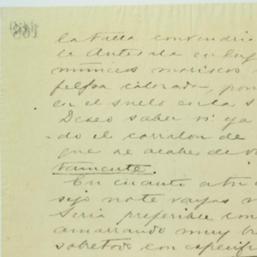 la talla convendria
la Antesala en lug
muñecos moriscos
felpa colorada, pon
en el suelo en la s
Deseo saber si ya
do el corralon de
que se acabe de v
tamente.
En cuanto a tu
sejo no te vayas
Seria preferible con
amarrando muy b
sobretodo con especifi